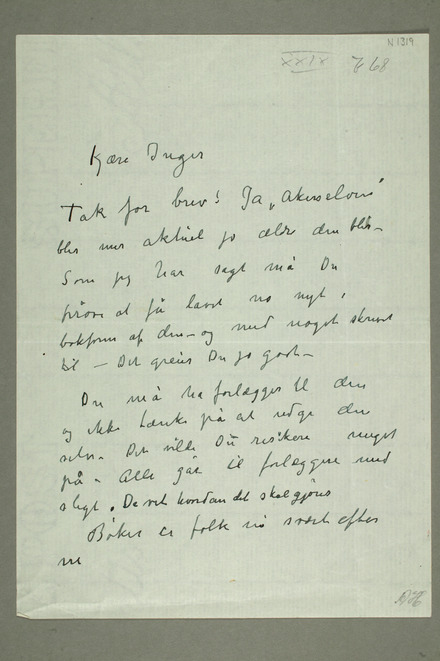 N 1319
XXIX
Kjære Inger
Tak for brev! Ja, „Akerselven"
blir mer aktuel jo ældre den blir –
Som jeg har sagt må Du
prøve at få lavet no nyt i
bokform af den – og med noget skrevet
til – Det greier Du jo godt –
Du må ha forlægger til den
og ikke tænke på at udgi den
selv. Det ville Du risikere meget
på – Alle går til forlæggere med
sligt. De vet hvordan det skal gjøres
Bøker er folk nu svært efter
nu